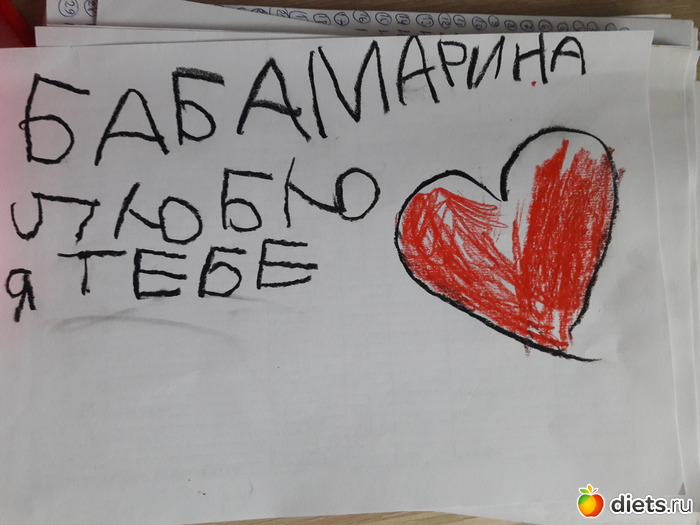 БАБАМАРИНА
ЛЮБЛЮ
Я ТЕБЕ
diets.ru